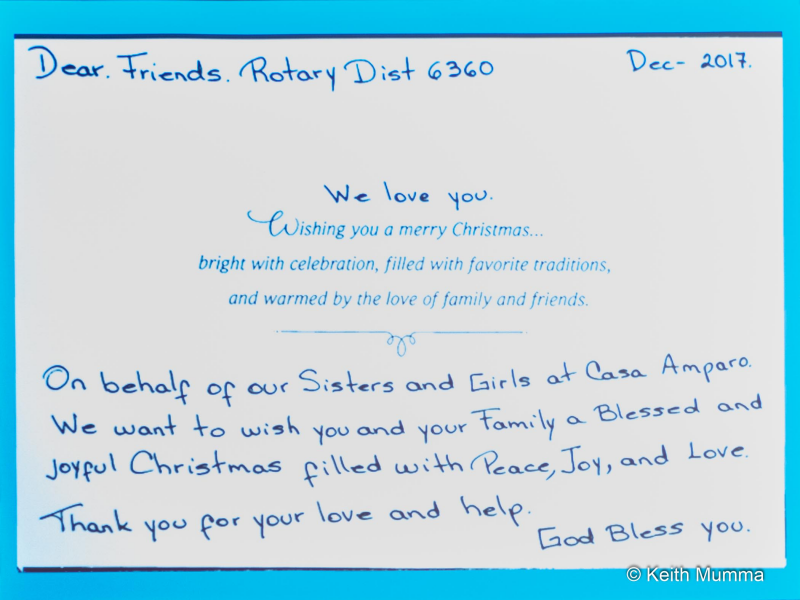 Dear. Friends. Rotary Dist 6360 Dec- 2017.
We love you.
Wishing you a merry Christmas...
bright with celebration, filled with favorite traditions,
and warmed by the love of family and friends.
On behalf of our Sisters and Girls at Casa Amparo.
We want to wish you and your Family a Blessed and
Joyful Christmas filled with Peace, Joy, and Love.
Thank you for your love and help.
God Bless you.
© Keith Mumma